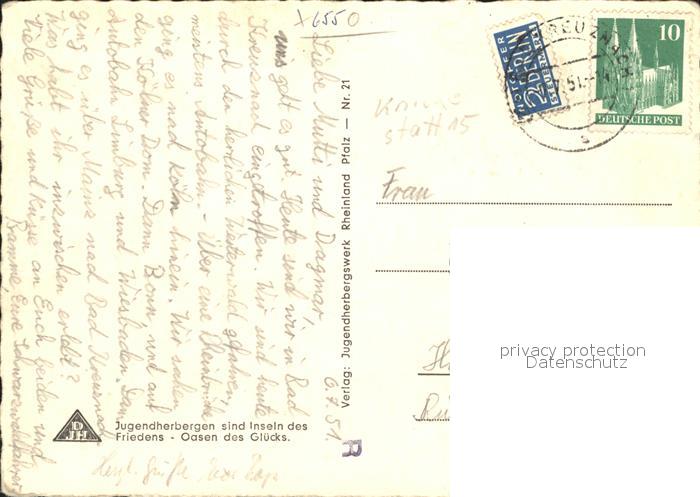 X6550
Liebe Mutti und Dagmar,
uns geht es gut. Heute sind wir in Bad
Kreuznach eingetroffen. Wir sind heute
durch den herrlichen Westerwald gefahren,
meistens Autobahn. Über eine Rheinbrücke
ging es nach Köln hinein. Wir sahen
den Kölner Dom. Dann Bonn, und auf
Autobahn Limburg und Wiesbaden. Dann
ging es über Mainz nach Bad Kreuznach
Was habt Ihr inzwischen erlebt?
Viele Grüße und Küsse an Euch beiden und
Eure Schwarzwaldfahrer
6.7.51
Verlag: Jugendherbergswerk Rheinland Pfalz — Nr. 21
DJH
Jugendherbergen sind Inseln des
Friedens - Oasen des Glücks.
Herzl. Grüße
R
NOTOPFER
2 BERLIN
STEUERMARKE
KREUZNACH
51.-14
10
DEUTSCHE POST
statt 15
Frau
privacy protection
Datenschutz